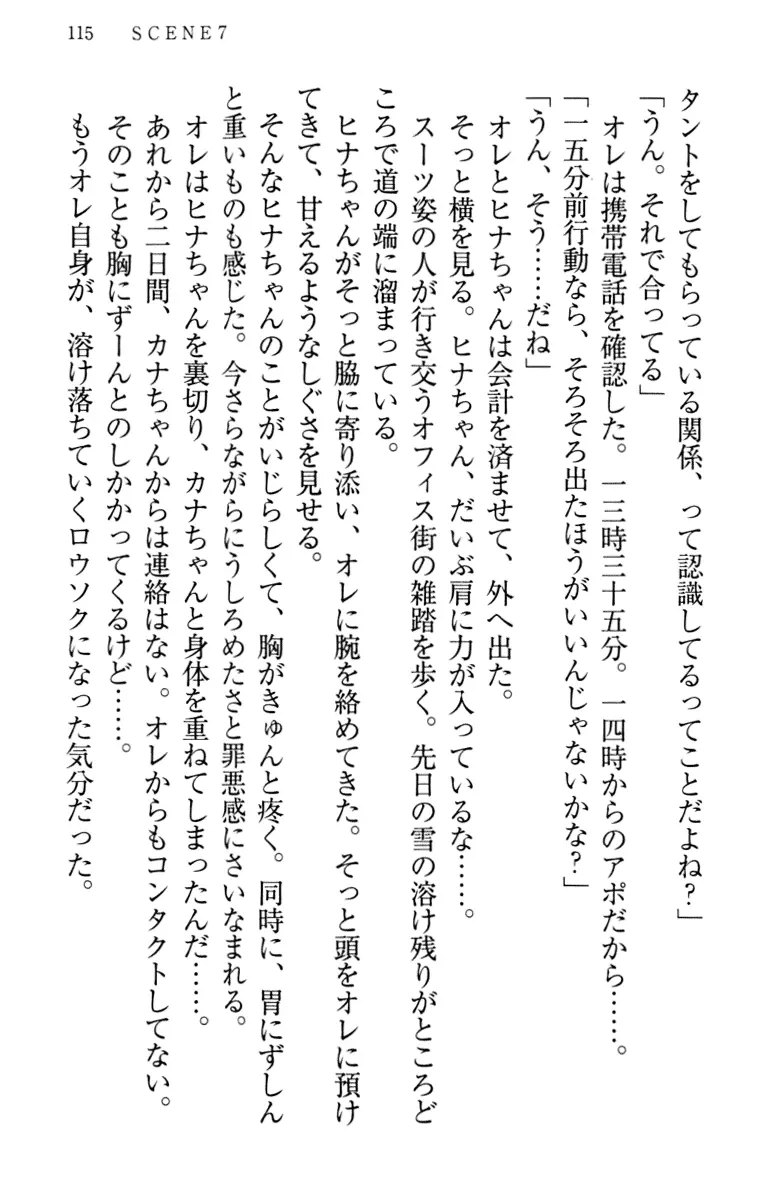 115 SCENE7
タントをしてもらっている関係、って認識してるってことだよね?」
「うん。それで合ってる」
オレは携帯電話を確認した。一三時三十五分。一四時からのアポだから……。
「一五分前行動なら、そろそろ出たほうがいいんじゃないかな?」
「うん、そう……だね」
オレとヒナちゃんは会計を済ませて、外へ出た。
そっと横を見る。ヒナちゃん、だいぶ肩に力が入っているな……。
スーツ姿の人が行き交うオフィス街の雑踏を歩く。先日の雪の溶け残りがところど
ころで道の端に溜まっている。
ヒナちゃんがそっと脇に寄り添い、オレに腕を絡めてきた。そっと頭をオレに預け
てきて、甘えるようなしぐさを見せる。
そんなヒナちゃんのことがいじらしくて、胸がきゅんと疼く。同時に、胃にずしん
と重いものも感じた。今さらながらにうしろめたさと罪悪感にさいなまれる。
オレはヒナちゃんを裏切り、カナちゃんと身体を重ねてしまったんだ……。
あれから二日間、カナちゃんからは連絡はない。オレからもコンタクトしてない。
そのことも胸にずーんとのしかかってくるけど……。
もうオレ自身が、溶け落ちていくロウソクになった気分だった。